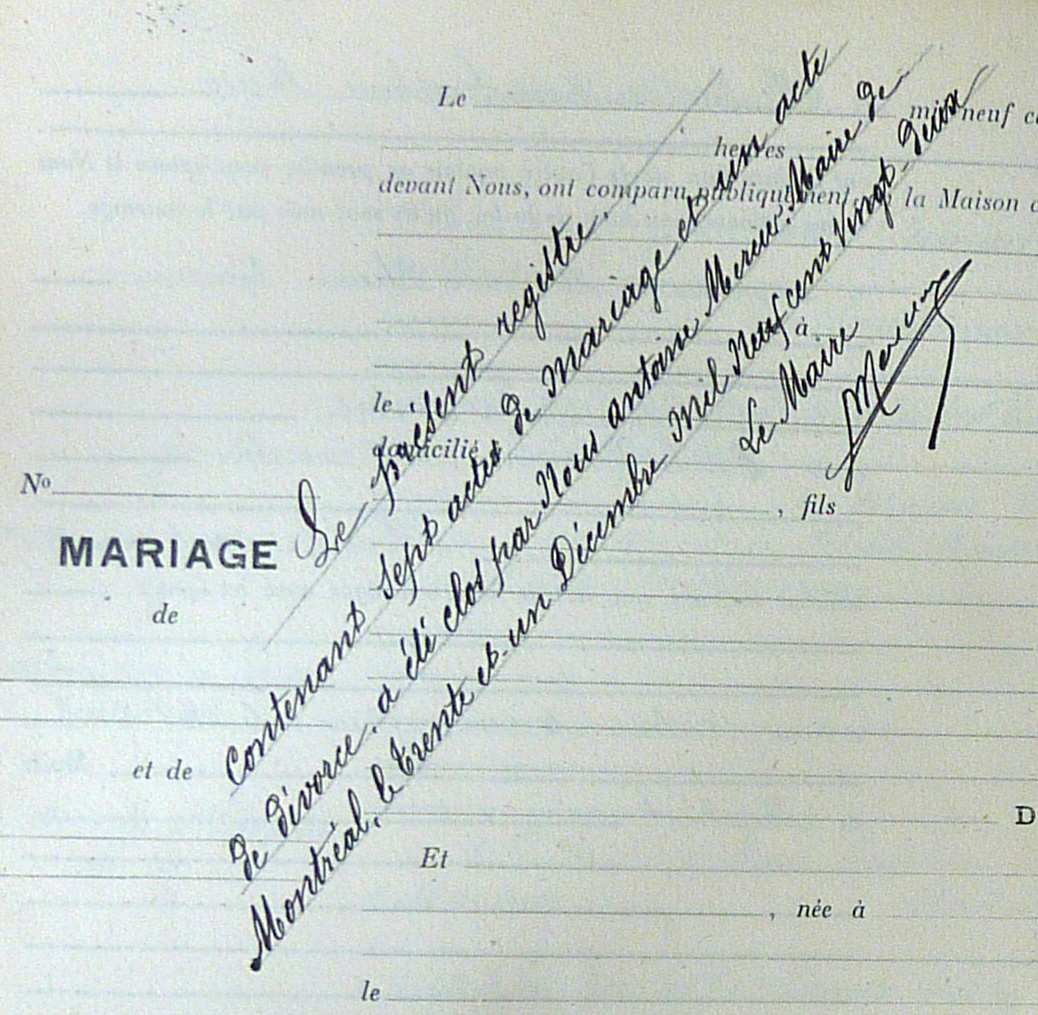 Le
mil neuf
heures
devant Nous, ont comparu publiquement la Maison
à
le
domicilié
No
, fils
MARIAGE
de
et de
D
Et
, née à
le
Le présent registre,
contenant sept actes de mariage et un acte
de divorce, a été clos par Nous antoine Mercur, Maire de
Montréal, le trente et un Décembre mil Neuf cent vingt-deux
Le Maire